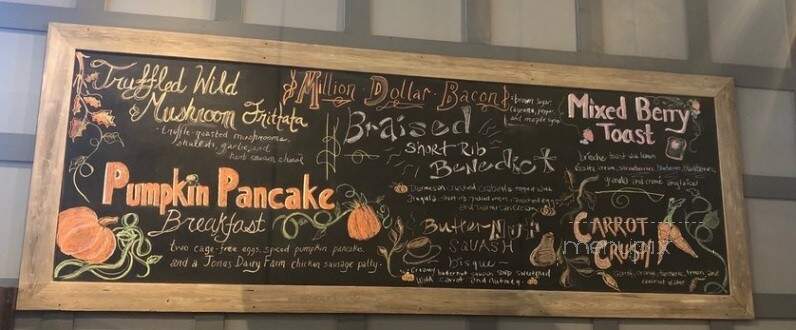 Truffled Wild
Mushroom Frittata
truffle-roasted mushrooms,
shallots, garlic, and
herb
Pumpkin Pancake
Breakfast
two cage-free eggs, spiced pumpkin pancake
and a Jones Dairy Farm chicken sausage patty.
$Million Dollar Bacon$
brown sugar,
cayenne, pepper
and maple syrup
Braised
Short Rib
Benedict
Parmesan crusted ciabatta topped with
short rib, poached eggs
and
Butter-Nut
SQUASH
bisque
Creamy butternut squash soup sweetened
with carrot and nutmeg
Mixed Berry
Toast
brioche toast with lemon
granola and
CARROT
CRUSH
carrot, orange, turmeric, lemon, and
coconut water
menupix